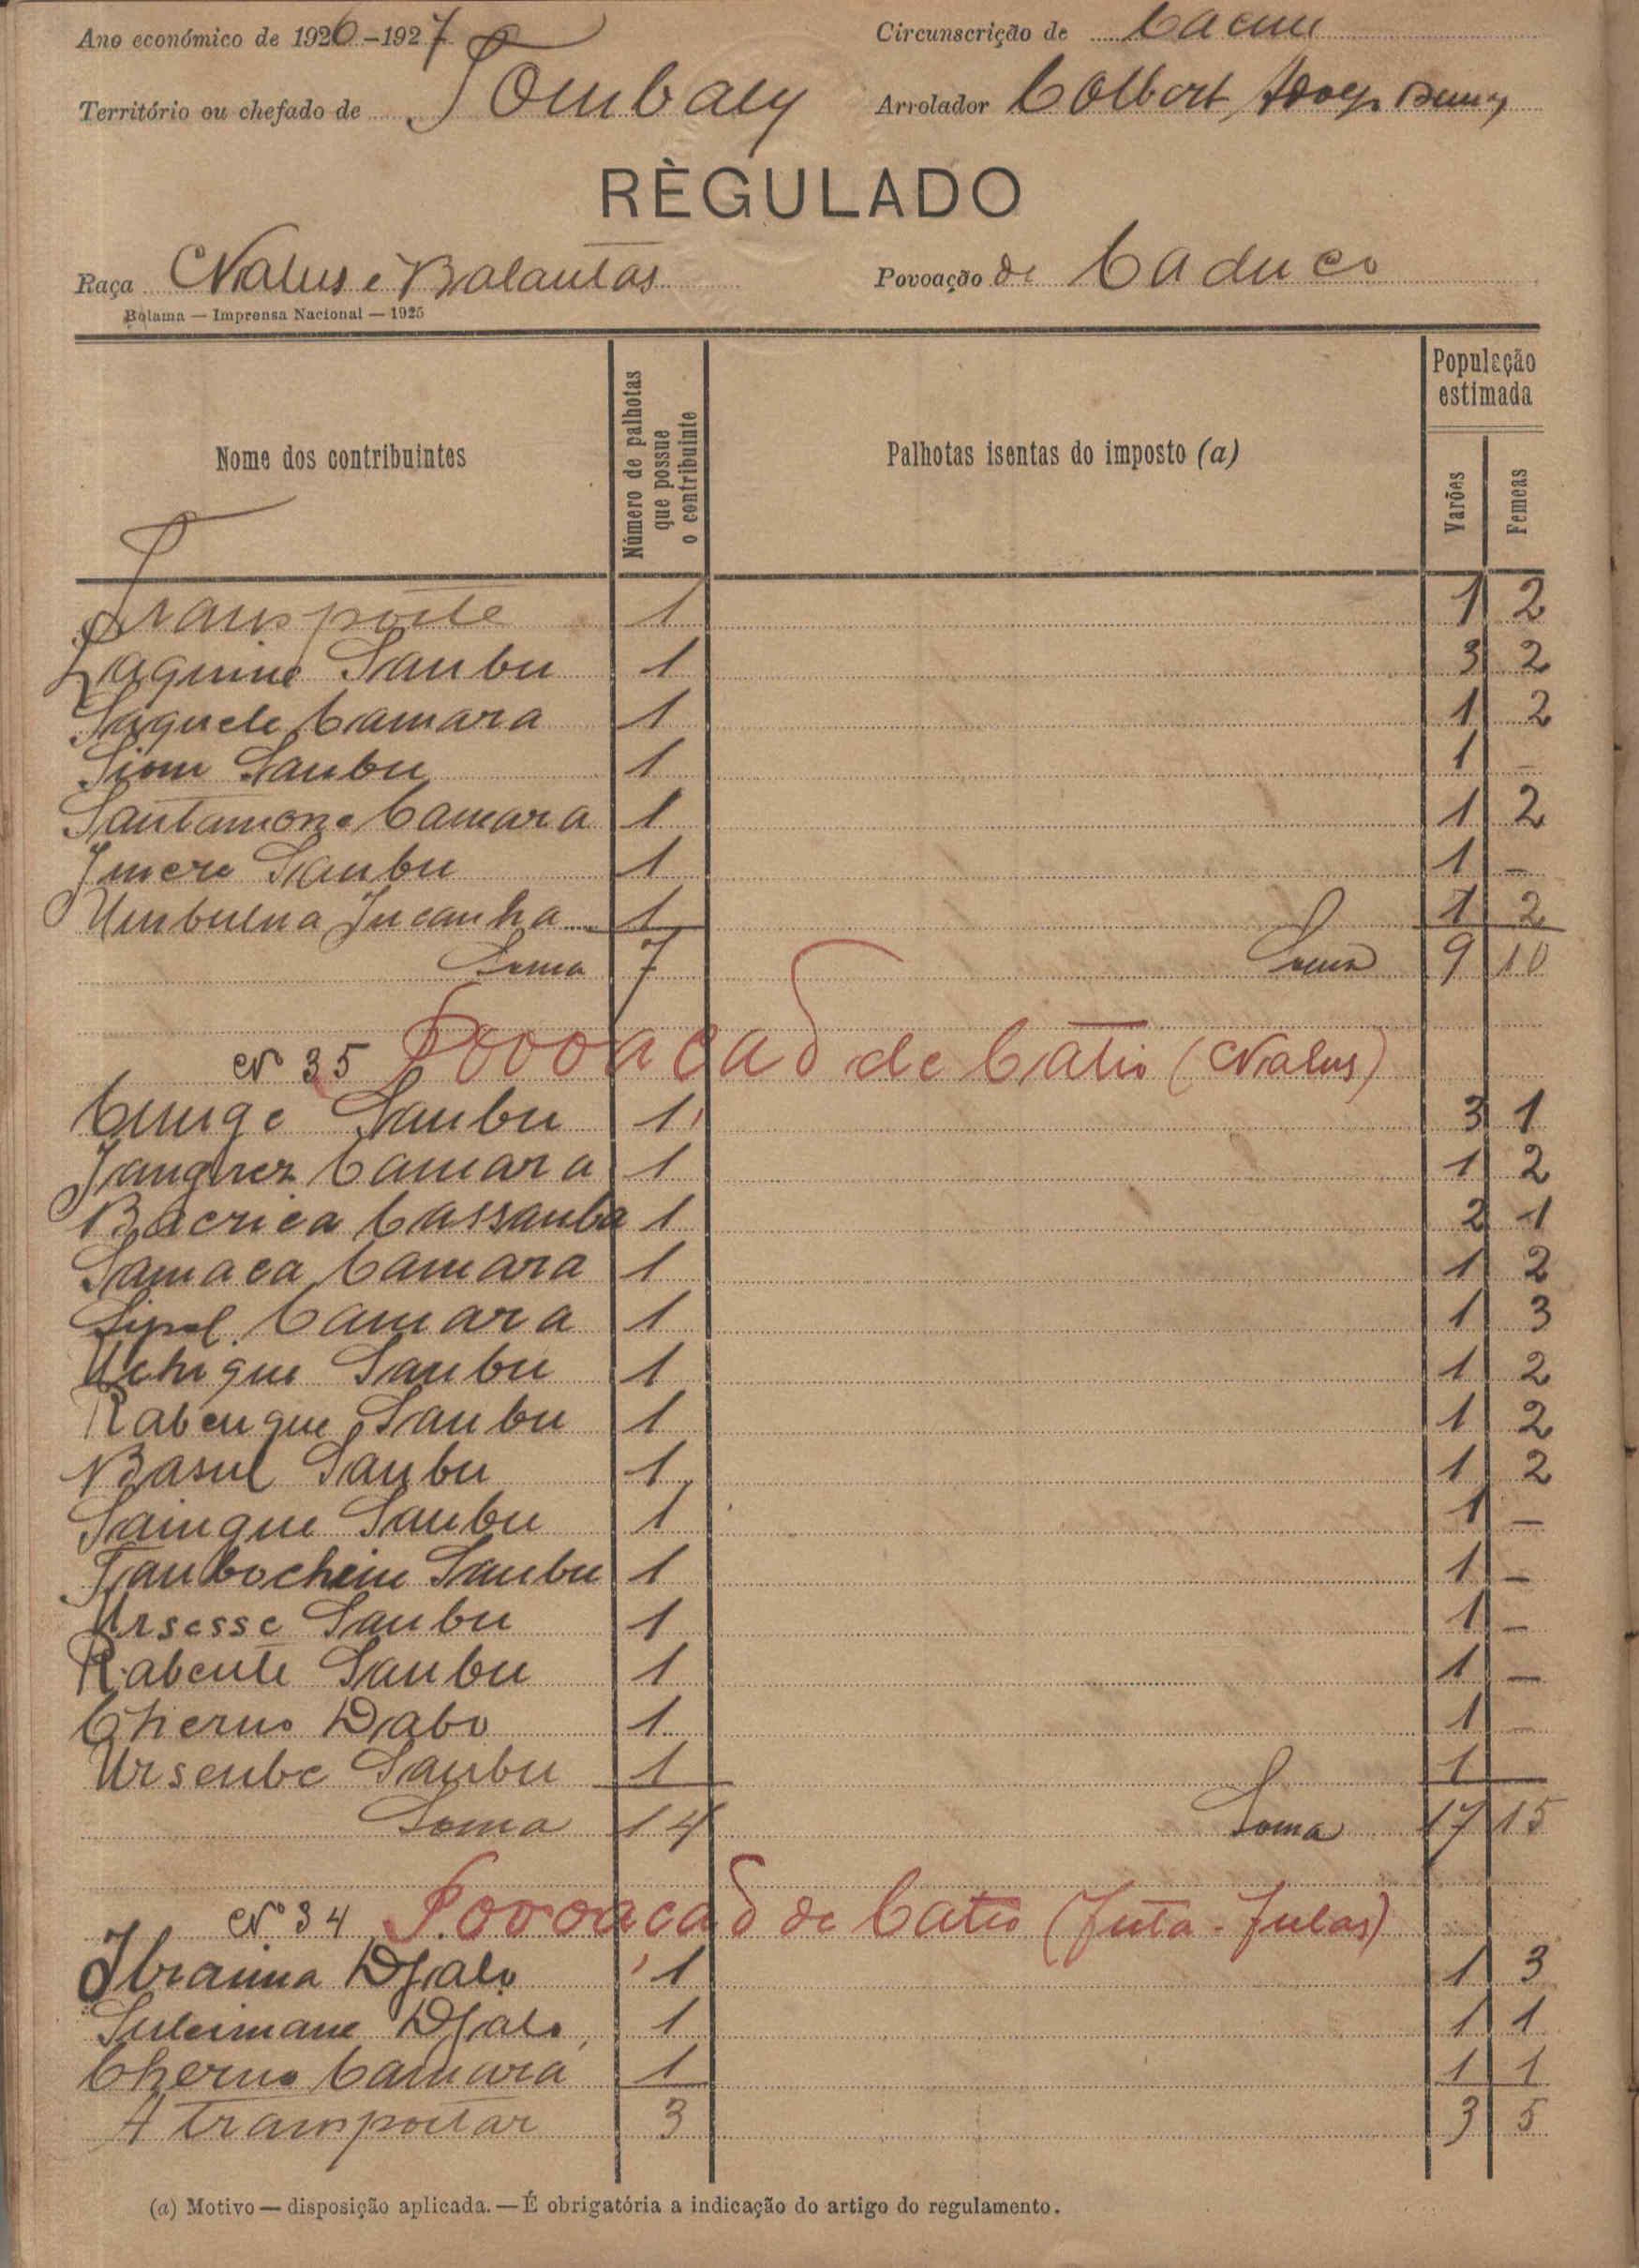 Ano económico de 1926-1927 Circunscrição de Cacine
Território ou chefado de Tombaly Arrolador Colbert
RÈGULADO
Raça Nalus e Balantas Povoação de Caduco
Bolama — Imprensa Nacional — 1925
Nome dos contribuintes Número de palhotas que possue o contribuinte Palhotas isentas do imposto (a) População estimada Varões Femeas
Transporte 1 1 2
Laguine Sambu 1 3 2
Saguele Camara 1 1 2
Sambu 1 1 -
Camara 1 1 2
Sambu 1 1 -
Incanha 1 1 2
Soma 7 Soma 9 10
Nº 35 Povoação de Catió (Nalus)
Sambu 1 3 1
Camara 1 1 2
Cassamba 1 2 1
Samaca Camara 1 1 2
Camara 1 1 3
Uchique Sambu 1 1 2
Rabenque Sambu 1 1 2
Basul Sambu 1 1 2
Sainque Sambu 1 1 -
Sambu 1 1 -
Ursesse Sambu 1 1 -
Rabente Sambu 1 1 -
Cherno Dabo 1 1 -
Ursenbe Sambu 1 1
Soma 14 Soma 17 15
Nº 34 Povoação de Catió (Futa-Fulas)
Ibraima Djaló 1 1 3
Suleimane Djaló 1 1 1
Cherno Camará 1 1 1
A transportar 3 3 5
(a) Motivo — disposição aplicada. — É obrigatória a indicação do artigo do regulamento.